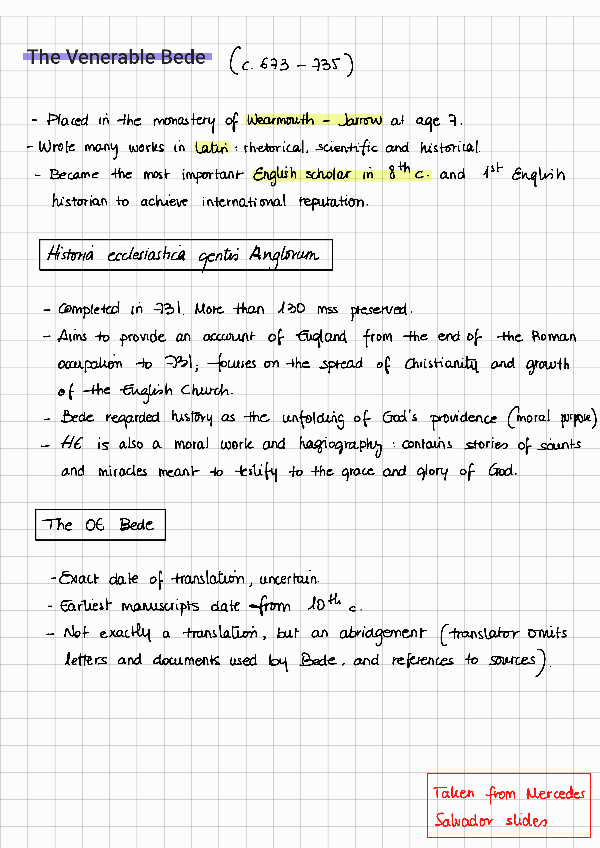 The Venerable Bede (c. 673 - 735)
- Placed in the monastery of Wearmouth - Jarrow at age 7.
- Wrote many works in Latin: rhetorical, scientific and historical.
- Became the most important English scholar in 8th c. and 1st English
historian to achieve international reputation.
Historia ecclesiastica gentis Anglorum
- Completed in 731. More than 130 mss preserved.
- Aims to provide an account of England from the end of the Roman
occupation to 731; focuses on the spread of Christianity and growth
of the English Church.
- Bede regarded history as the unfolding of God's providence (moral purpose)
- HE is also a moral work and hagiography: contains stories of saints
and miracles meant to testify to the grace and glory of God.
The OE Bede
- Exact date of translation, uncertain.
- Earliest manuscripts date from 10th c.
- Not exactly a translation, but an abridgement (translator omits
letters and documents used by Bede, and references to sources).
Taken from Mercedes
Salvador slides